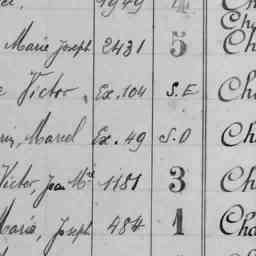 1949 4 Ch
Marie Joseph 2431 5 Ch
Victor, Ex. 104 S.E Ch
Marcel Ex. 49 S.O Ch
Victor, Jean Mie 1181 3 Ch
Marie, Joseph 484 1 Cha